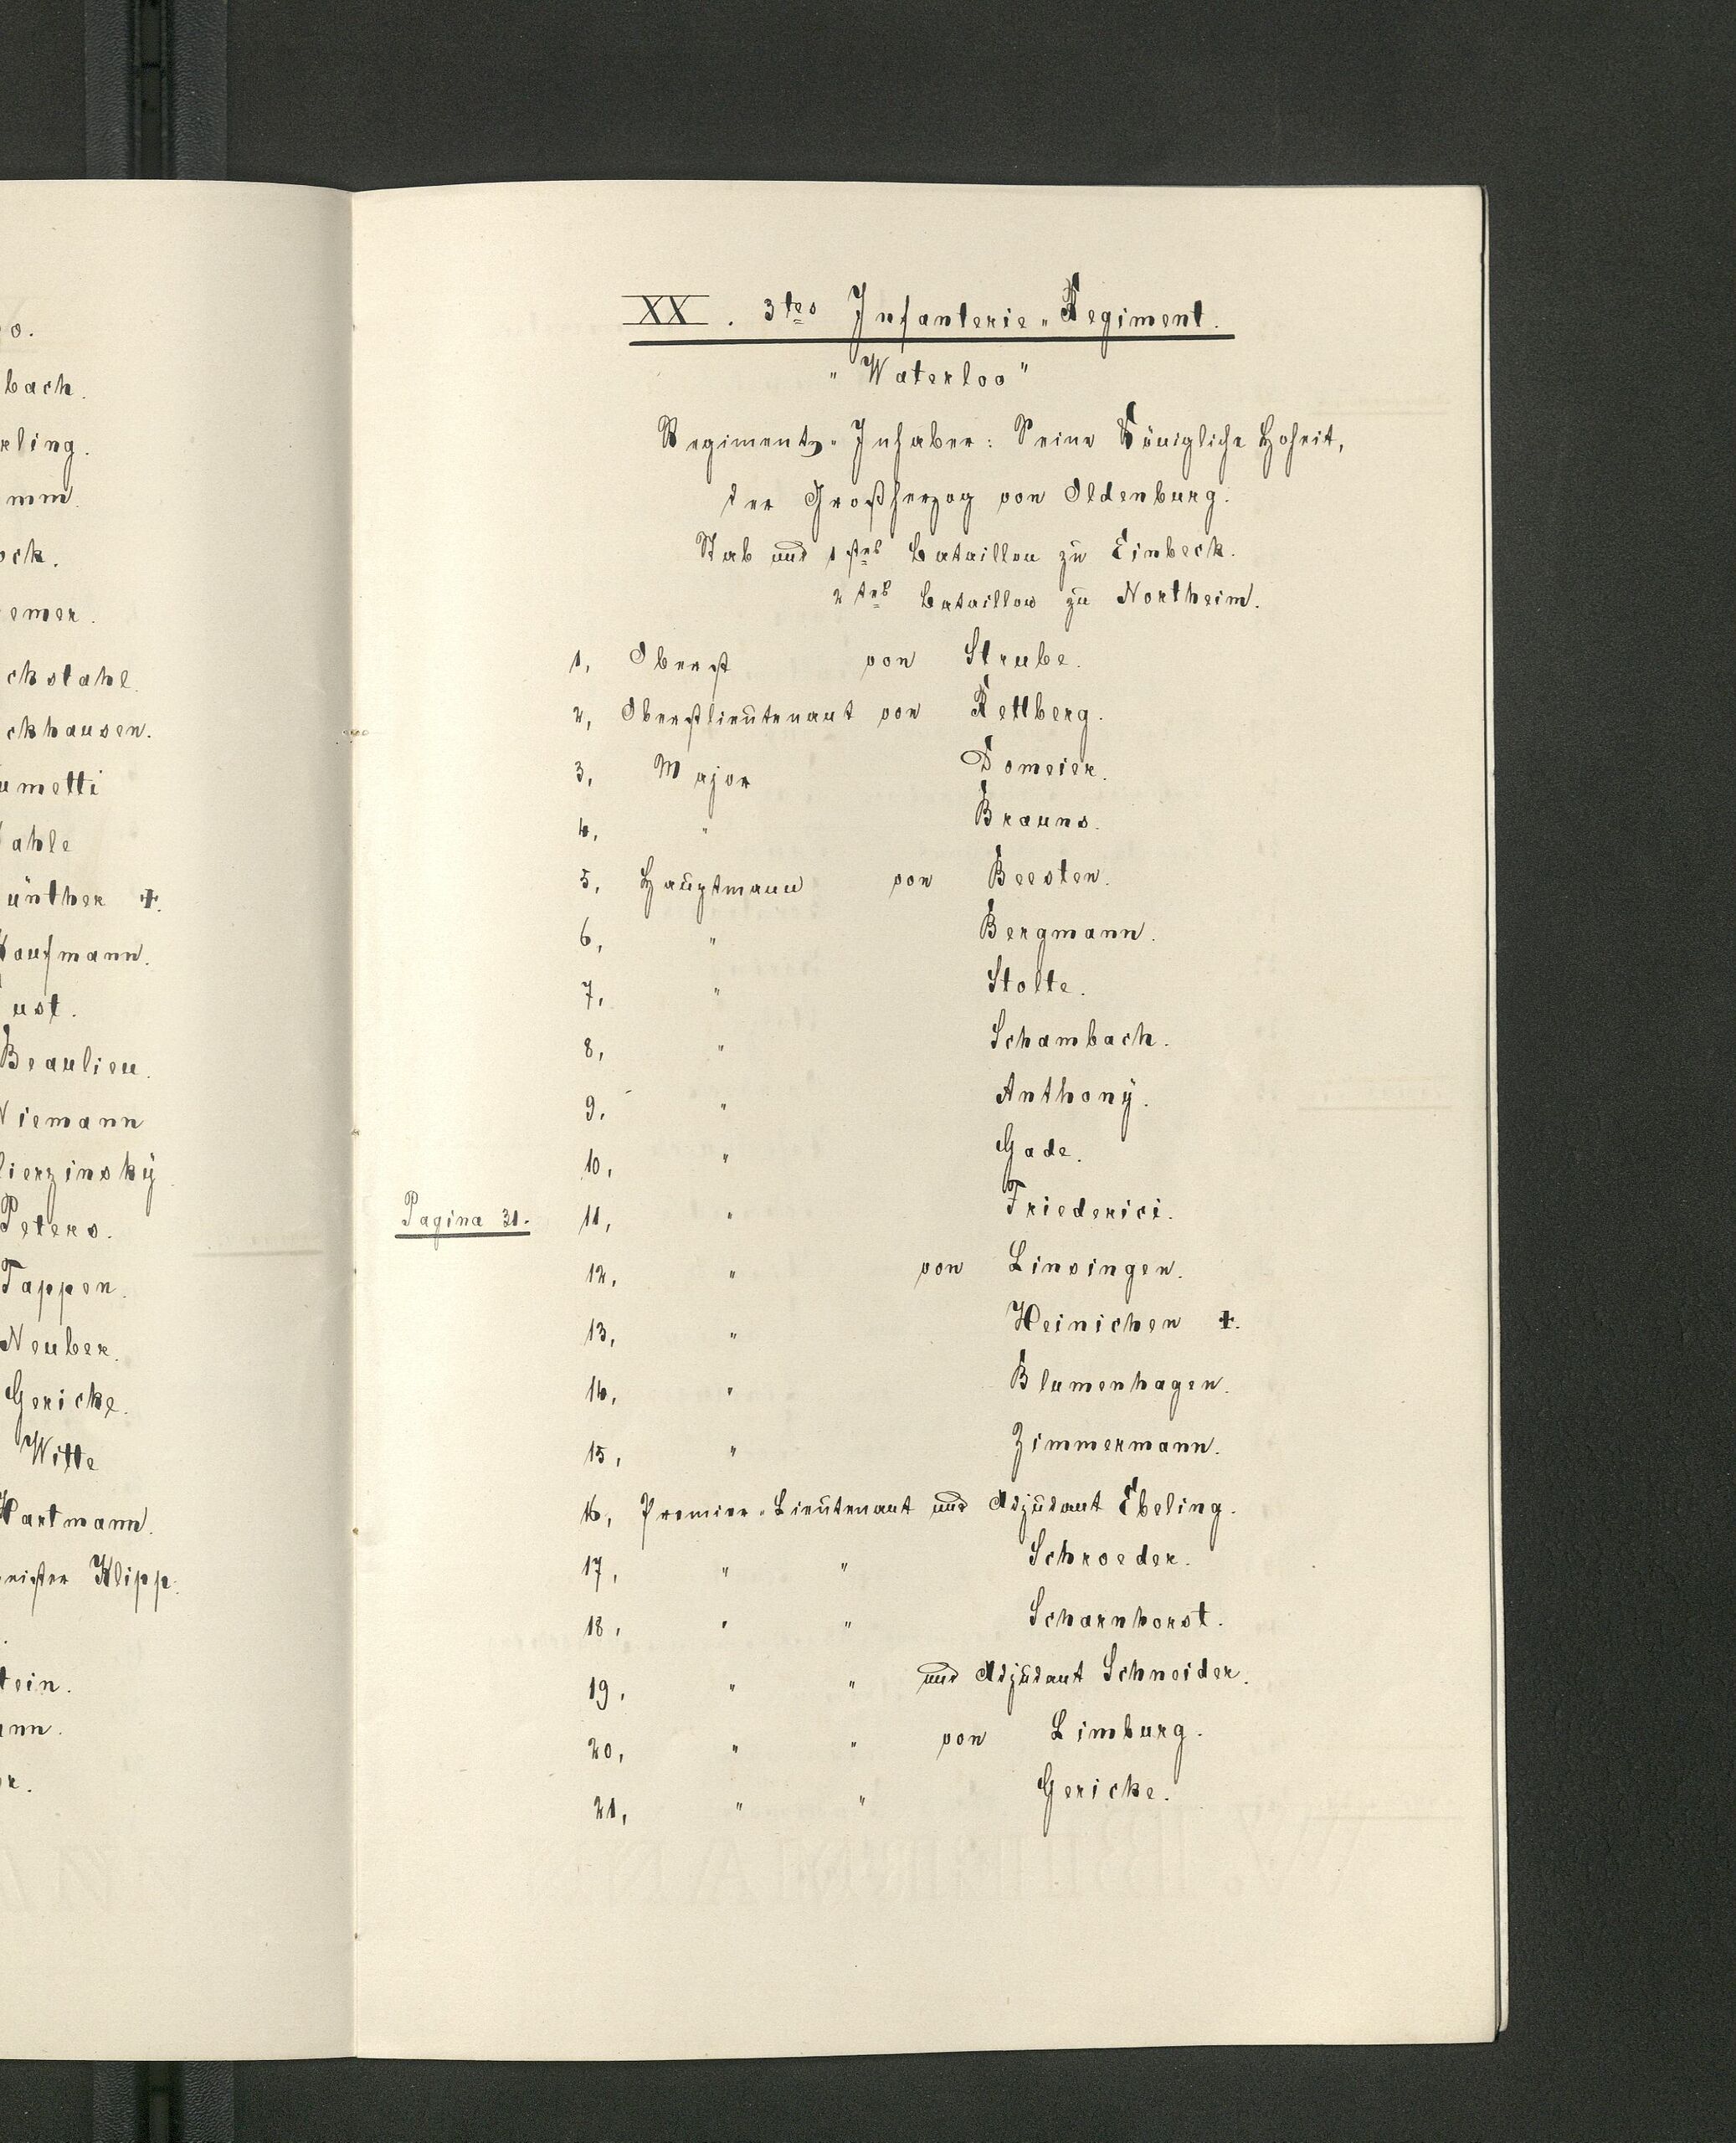 o.
bach.
rling.
mm.
ock.
emer.
ckstahl.
ckhausen.
umetti
ahle
ünther +.
Kaufmann.
ust.
Beaulieu.
Niemann
lierzinskÿ
Peters.
Tappen.
Neuber.
Gericke.
Witte
Hartmann.
meister Klipp.
tein.
ann.
r.
XX. 3tes Infanterie-Regiment.
"Waterloo"
Regiments-Inhaber: Seine Königliche Hoheit,
der Großherzog von Oldenburg.
Stab und 1stes Bataillon zu Einbeck.
2tes Bataillon zu Northeim.
1, Oberst von Strube.
2, Oberstlieutenant von Rettberg.
3, Major Domeier.
4, " Brauns.
5, Hauptmann von Beesten.
6, " Bergmann.
7, " Stolte.
8, " Schambach.
9, " Anthonÿ.
10, " Gade.
Pagina 31. 11, " Friederici.
12, " von Linsingen.
13, " Heinichen +.
14, " Blumenhagen.
15, " Zimmermann.
16, Premier-Lieutenant und Adjudant Ebeling.
17, " " Schroeder.
18, " " Scharnhorst.
19, " " und Adjudant Schneider.
20, " " von Limburg.
21, " " Gericke.